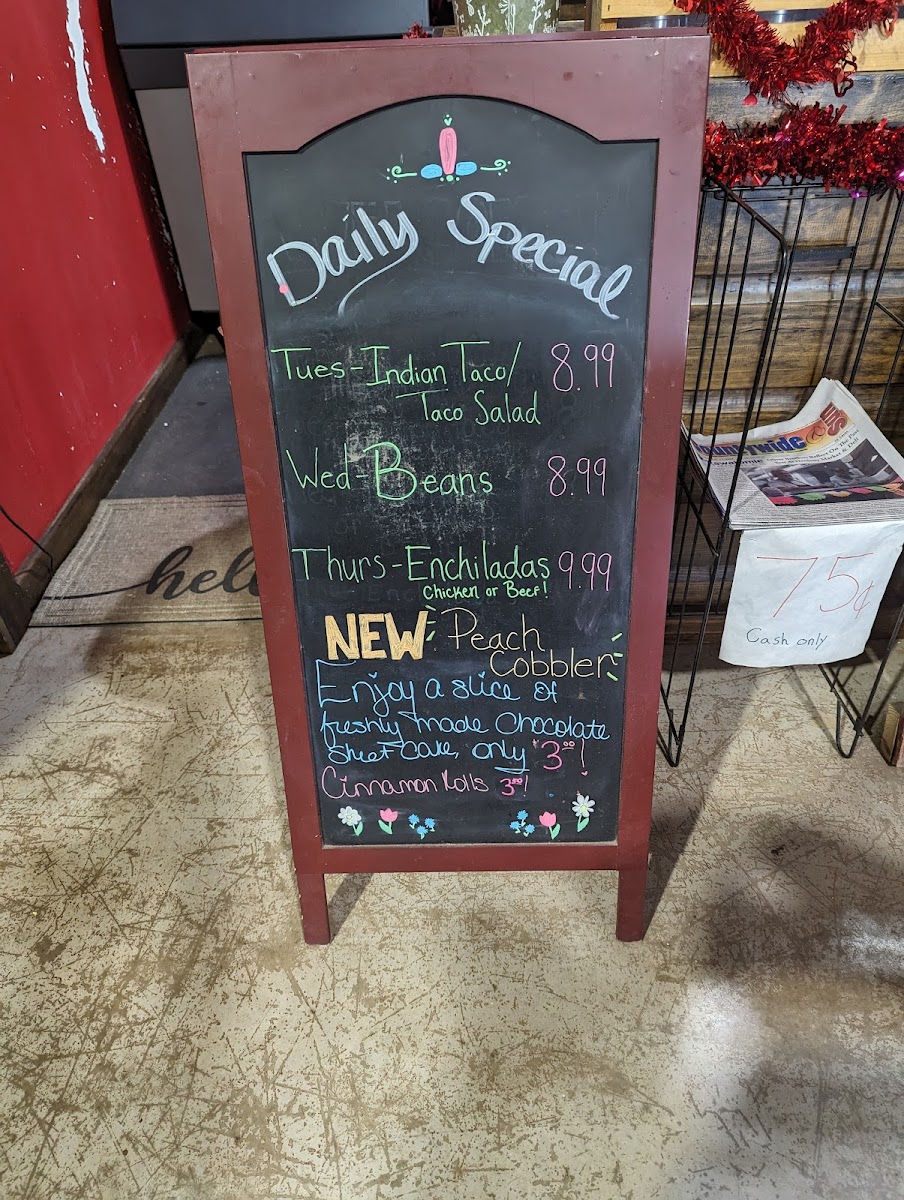 Daily Special
Tues-Indian Taco/ 8.99
Taco Salad
Wed-Beans 8.99
Thurs-Enchiladas 9.99
Chicken or Beef!
NEW! Peach
Cobbler
Enjoy a slice of
freshly made Chocolate
Sheet Cake, only $3.00!
Cinnamon Rolls 3.50!
hell
75¢
Cash only